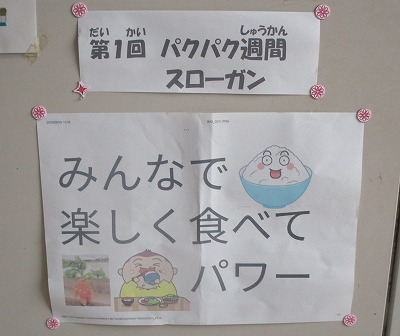 だい かい しゅうかん
第1回 パクパク週間
スローガン
みんなで
楽しく食べて
パワー